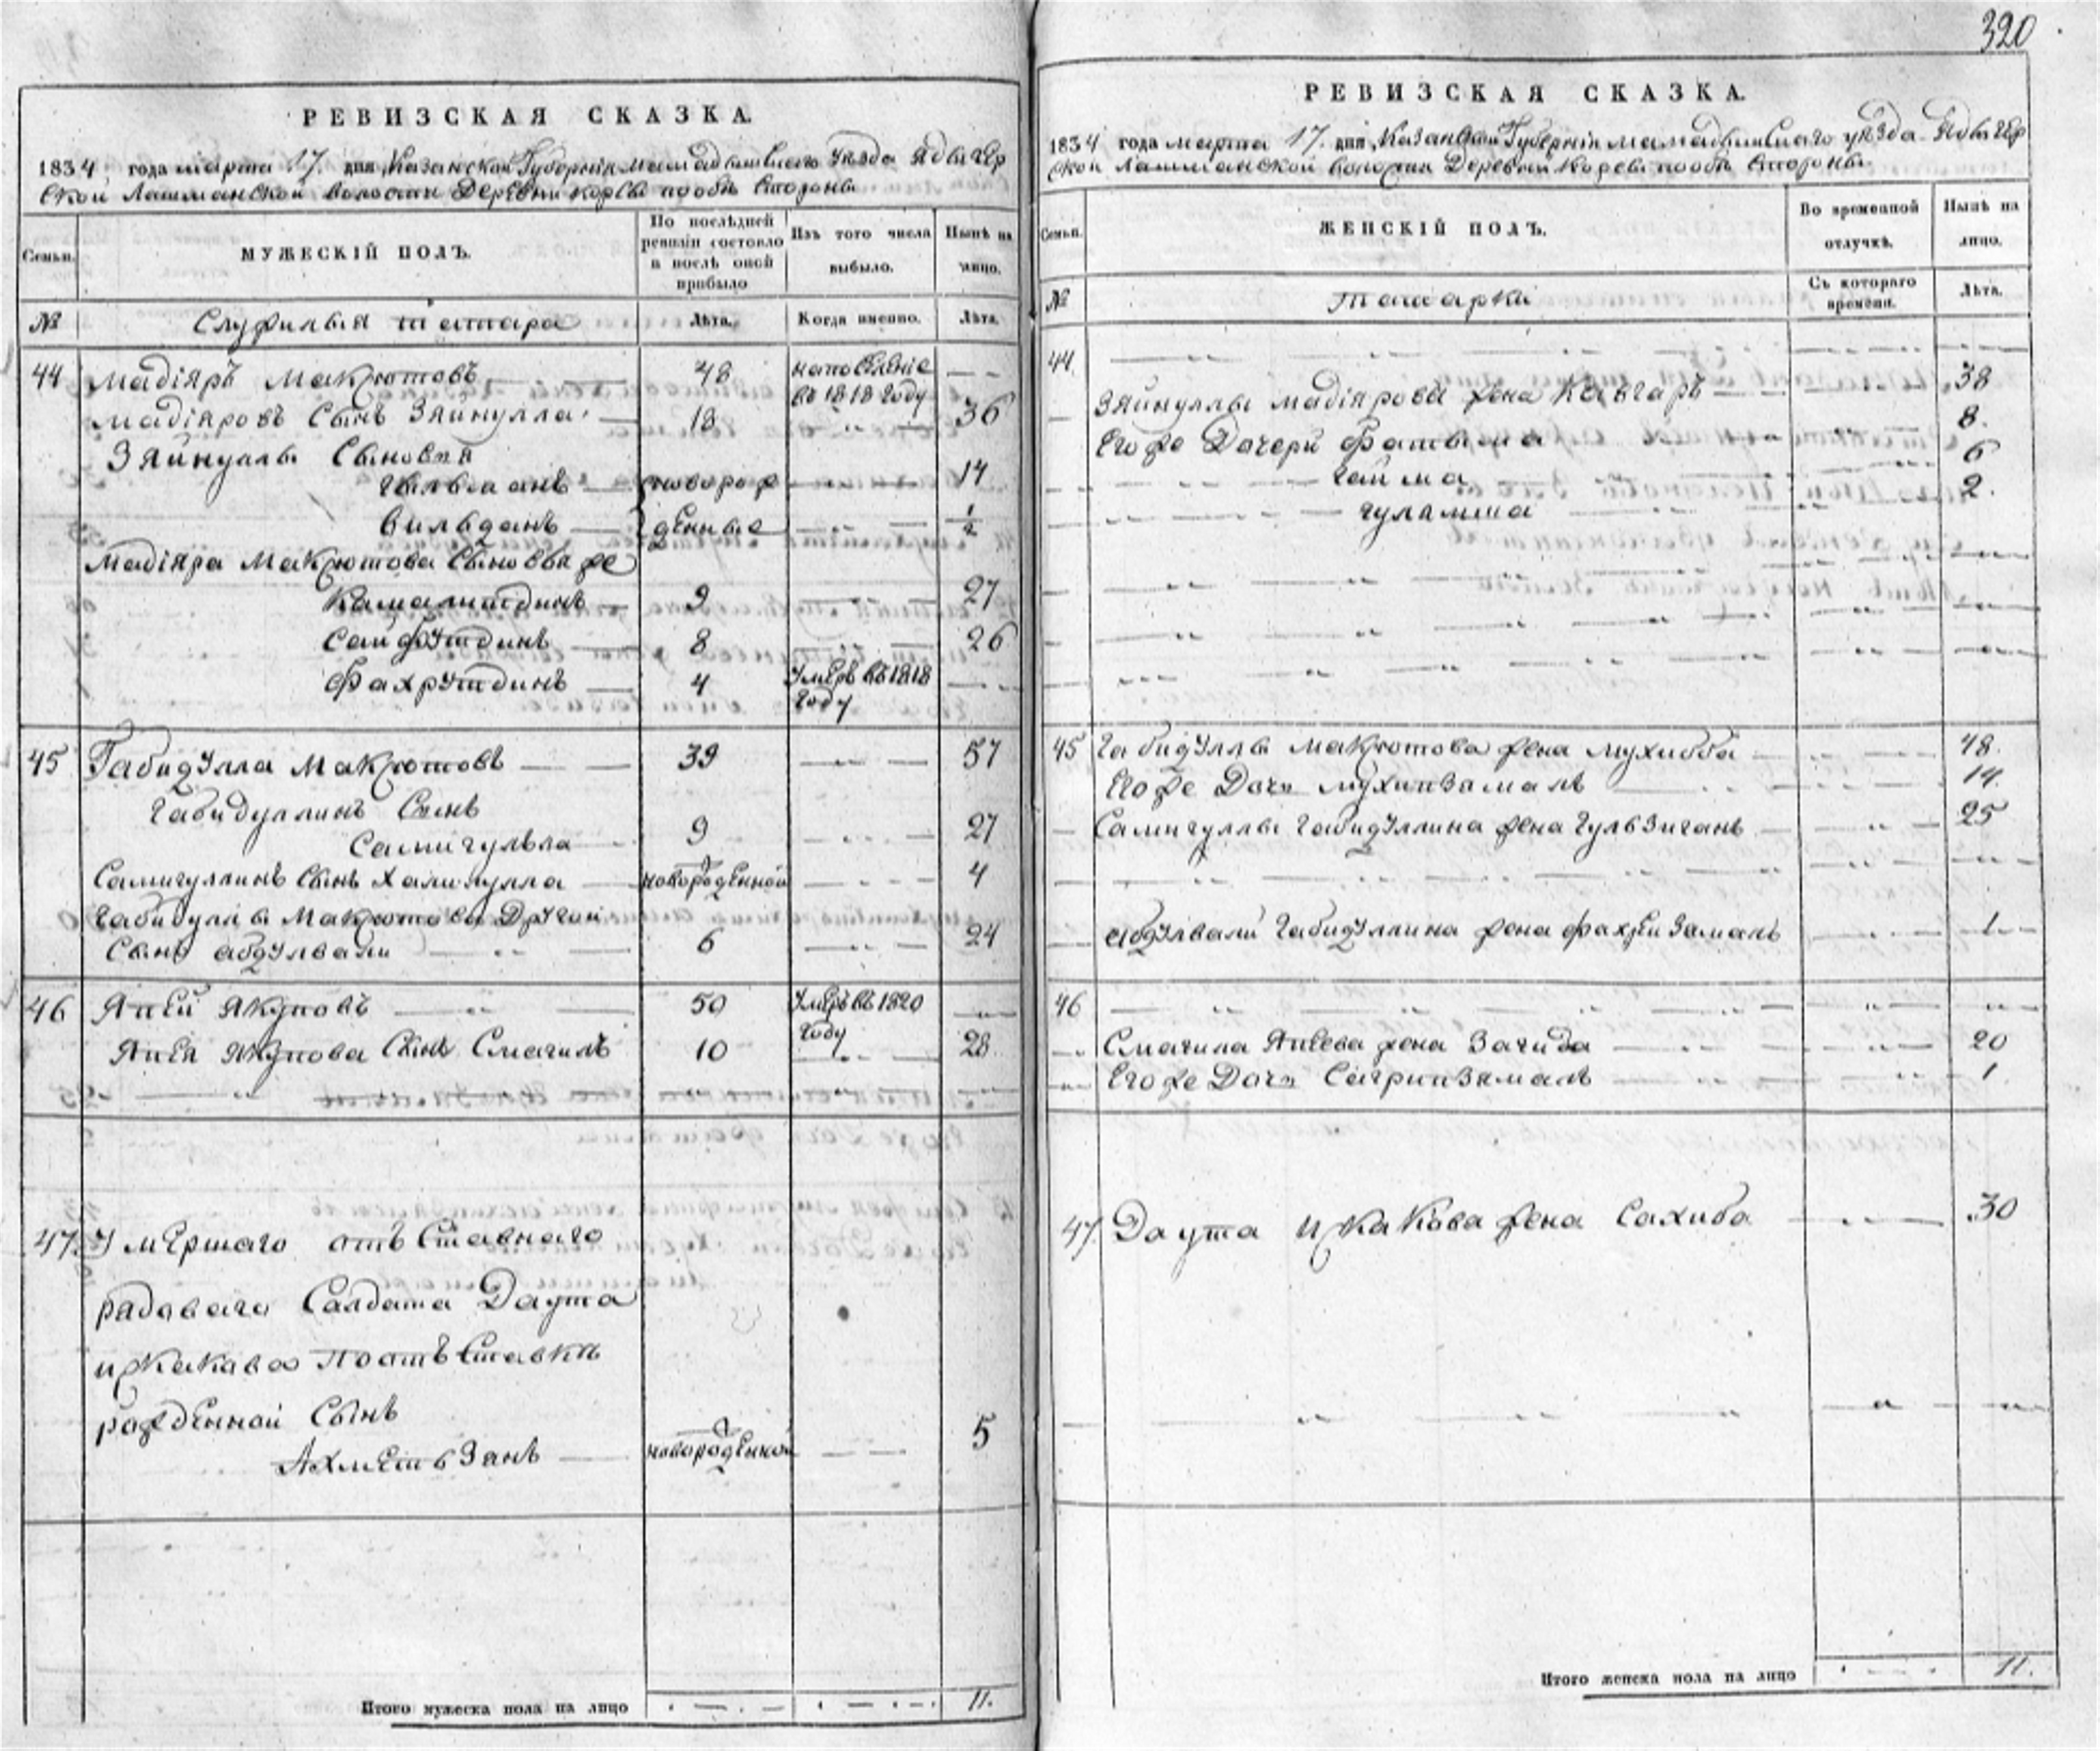 320
РЕВИЗСКАЯ СКАЗКА.
1834 года марта 17. дня Казанской Губерніи Мамадышского Уезда
ской Лашманской волости Деревни по обе Стороны
Семьи.
МУЖЕСКІЙ ПОЛЪ.
По послѣдней ревизіи состояло и послѣ оной прибыло
Изъ того числа выбыло.
Нынѣ на лицо.
№
Служилыя татара
Лѣта.
Когда именно.
Лѣта.
44 Мадіяръ Макютовъ 48
въ 1818 году
Мадіяровъ Сынъ Зяйнулла 18 36
Зяйнуллы Сыновья
новорож 14
Вильданъ денные 1/2
Мадіяра Макютова Сыновья же
Камалитдинъ 9 27
Сайфутдинъ 8 26
Фахрутдинъ 4 Умеръ въ 1818 году
45 Габидулла Макютовъ 39 57
Габидуллинъ Сынъ
Самигулла 9 27
Самигуллинъ Сынъ новорожденной 4
Габидуллы Макютова Другой
Сынъ абдулвали 6 24
46 Япей Якуповъ 50 Умеръ въ 1820 году
Япея Якупова Сынъ Смагилъ 10 28
47. Умершаго отъ Ставнаго
радоваго Салдата Даута
по отъ Ставки
рожденной Сынъ
Ахметь Зянъ новорожденной 5
Итого мужеска пола на лицо 11.
РЕВИЗСКАЯ СКАЗКА.
1834 года марта 17. дня Казанской Губерніи Мамадышского уезда
ской Лашманской волости Деревни по обе Стороны
Семьи.
ЖЕНСКІЙ ПОЛЪ.
Во временной отлучкѣ.
Нынѣ на лицо.
№
Татарки
Съ котораго времени.
Лѣта.
44.
Зяйнуллы Мадіярова жена 38
Его же Дочери Фатыма 8.
Гайма 6
2.
45 Габидуллы Макютова жена Мухибба 48.
Его же Дочь 14.
Самигуллы Габидуллина жена Гульзиганъ 25
абдулвали Габидуллина жена 1
46
Смагила Япеева жена Загида 20
Его же Дочь 1
47. Даута жена Сахиба 30
Итого женска пола на лицо 11.